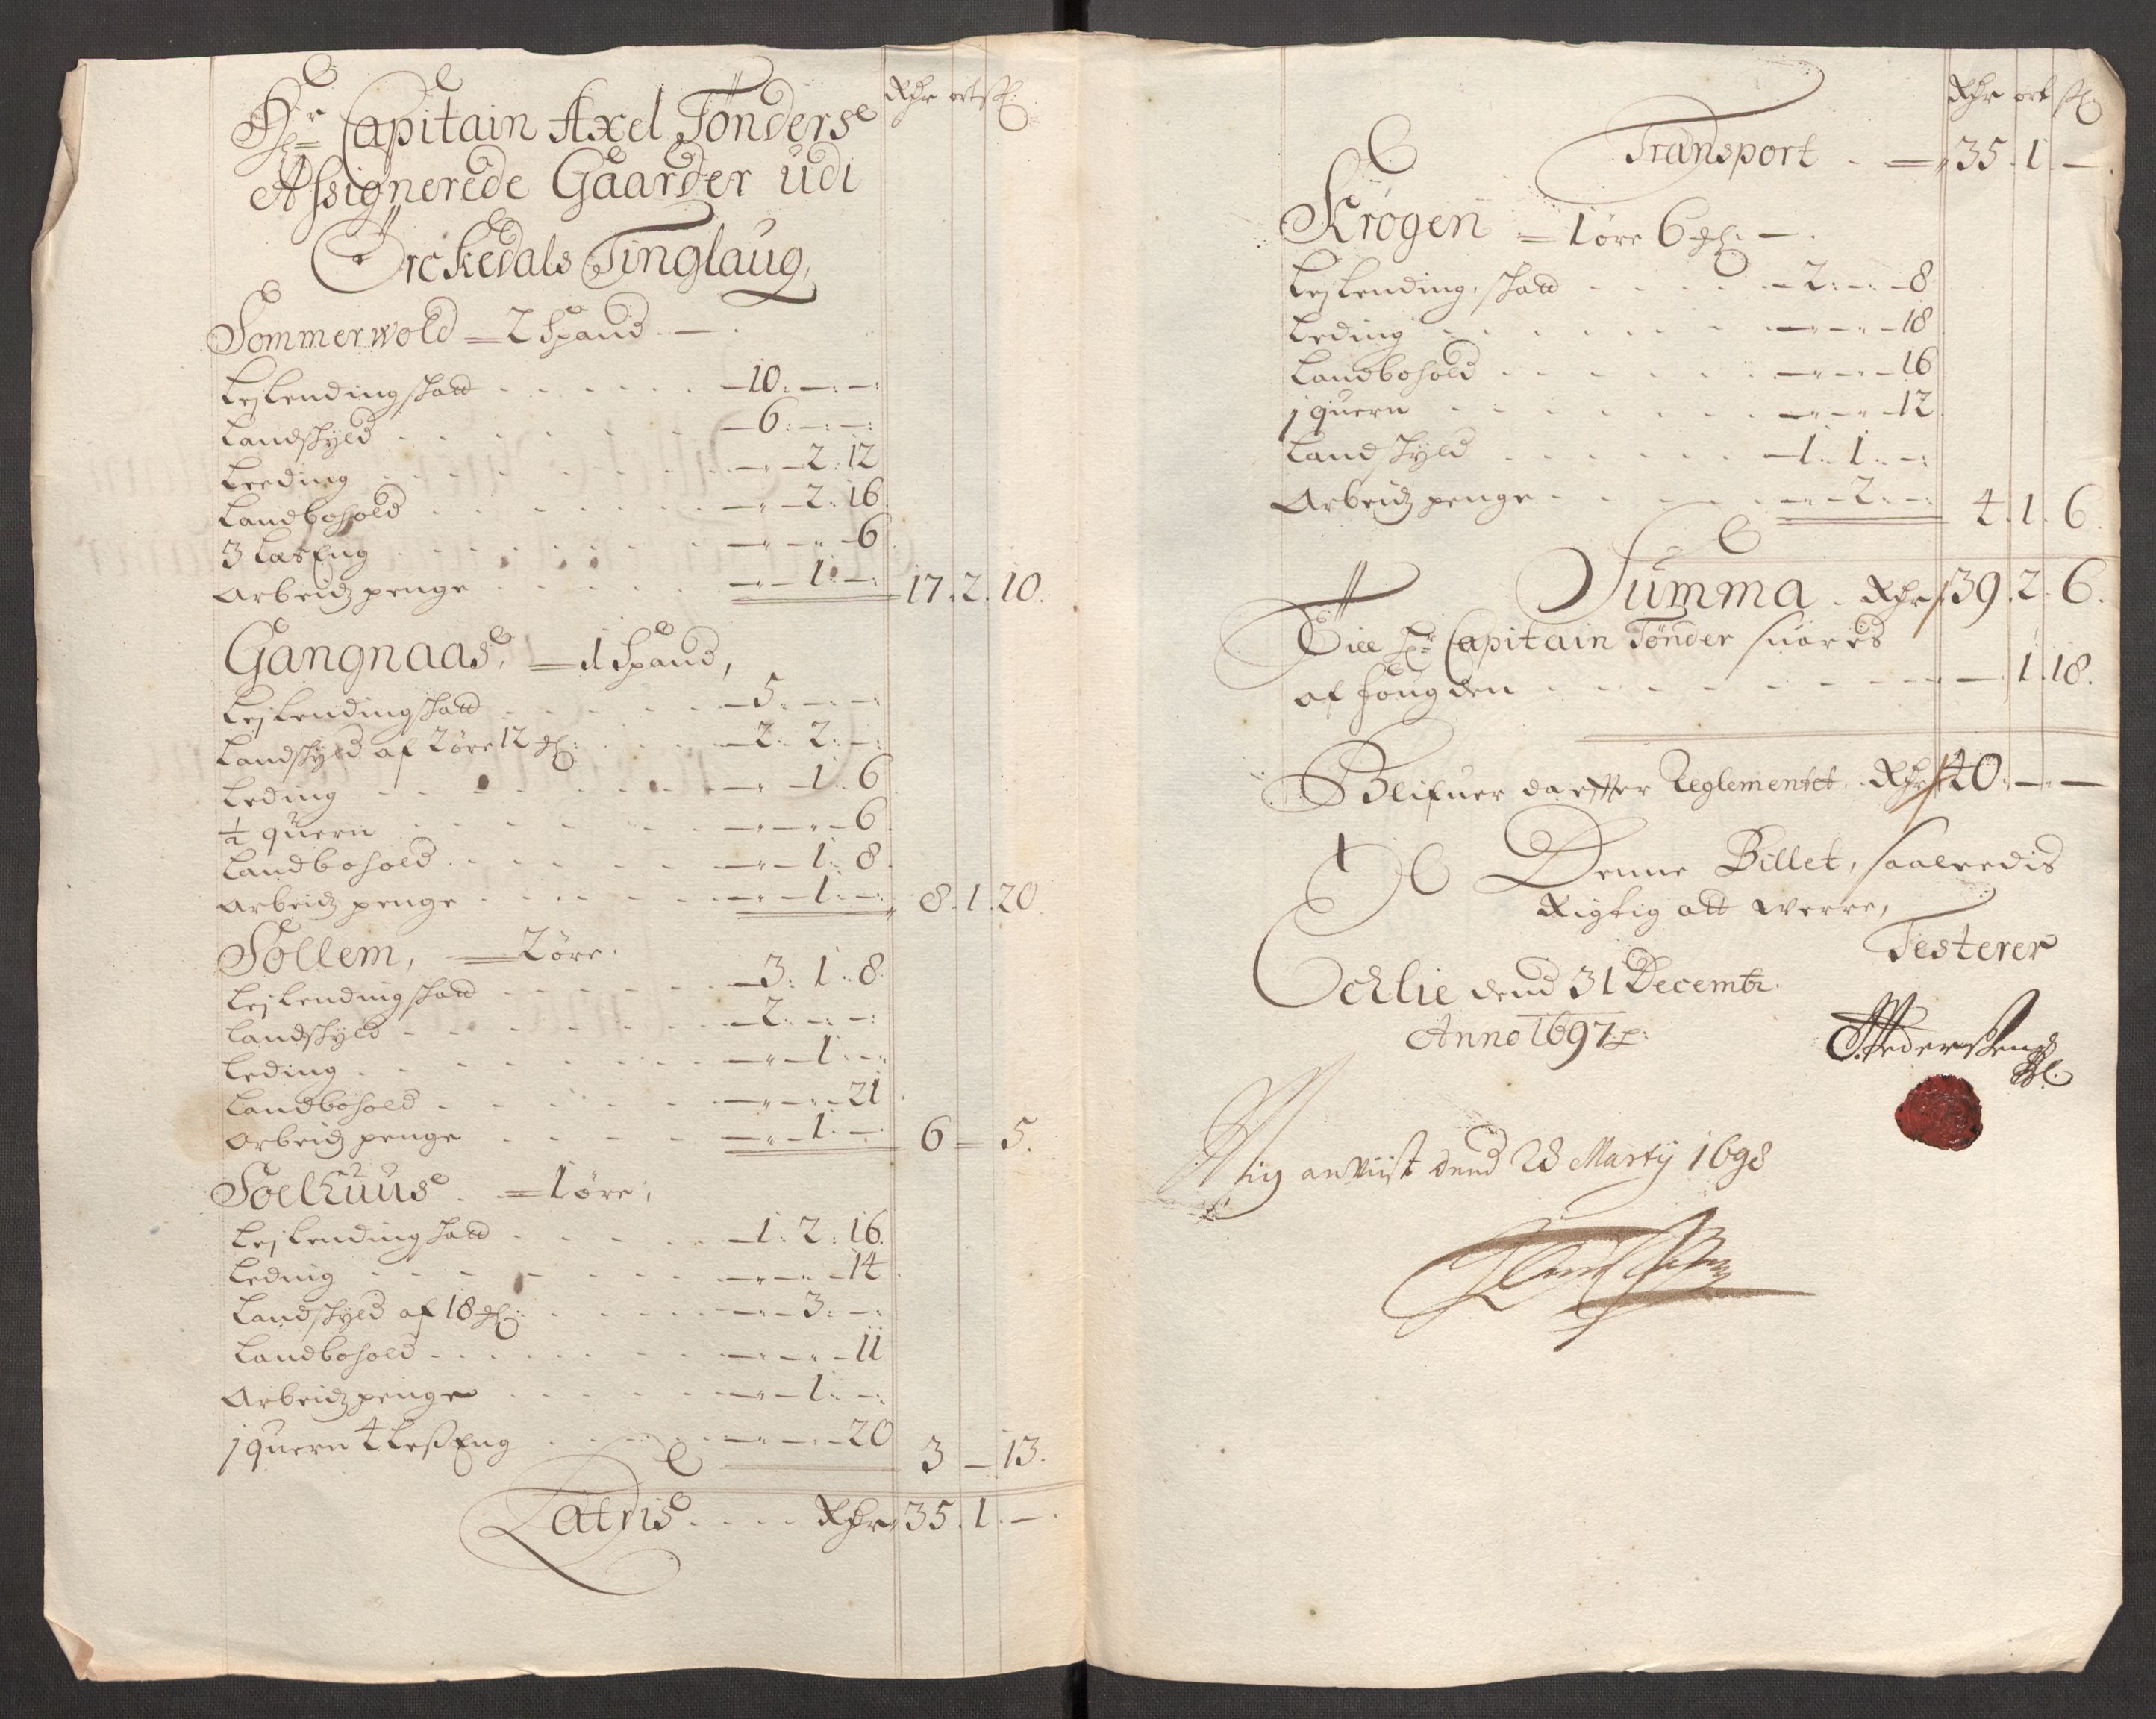 Rdr ort sk
Hr Capitain Axel Tønders
Assignerede Gaarder udi
Ørckedals Tinglaug,
Sommerwold = 2 Spand —
Lejlendingskatt - - 10: —: —:
Landskyld - - 6: —: —:
Leeding - - — 2: 12
Landbohold - - — 2: 16
3 Læs Eng - - — — 6
Arbeidz penge - - — 1: —: 17. 2. 10.
Gangnaas, = 1 Spand,
Lejlendingskatt - - 5: —: —:
Landskyld af 2 øre 12 ₰: - - 2: 2: —:
Leding - - — 1: 6
½ quern - - — — 6
Landbohold - - — 1: 8
Arbeidz penge - - — 1: —: 8. 1. 20.
Sollem, = 2 øre.
Lejlendingskatt - - 3: 1: 8
Landskyld - - 2: —: —:
Leding - - — 1: —:
Landbohold - - — — 21
Arbeidz penge - - — 1: —: 6 — 5.
Soelhuus. = 1 øre,
Lejlendingskatt - - 1: 2: 16.
Leding - - — — 14
Landskyld af 18 ₰: - - — 3: —:
Landbohold - - — — 11
Arbeidz penge - - — 1: —:
j quern 4 Less Eng - - — — 20 3 — 13.
Latris. - - Rdr 35. 1. —.
Rdr ort sk
Transport - = 35. 1. —
Krogen = 1 øre 6 ₰: —
Lejlending skatt - - 2: —: 8
Leding - - — — 18
Landbohold - - — — 16
j quern - - — — 12
Landskyld - - 1: 1: —:
Arbeidz penge - - — 2: —: 4. 1. 6.
Summa. Rdr 39. 2. 6.
Till Hr Capitain Tønder suaris
af fougden - - — 1. 18.
Blifuer da effter Reglementet. Rdr 40: — —
Denne Billet, saaledis
Rigtig att werre,
Testerer
dend 31 Decembr.
Anno 1697
Pedersen
Mig anviist dend 28 Martij 1698